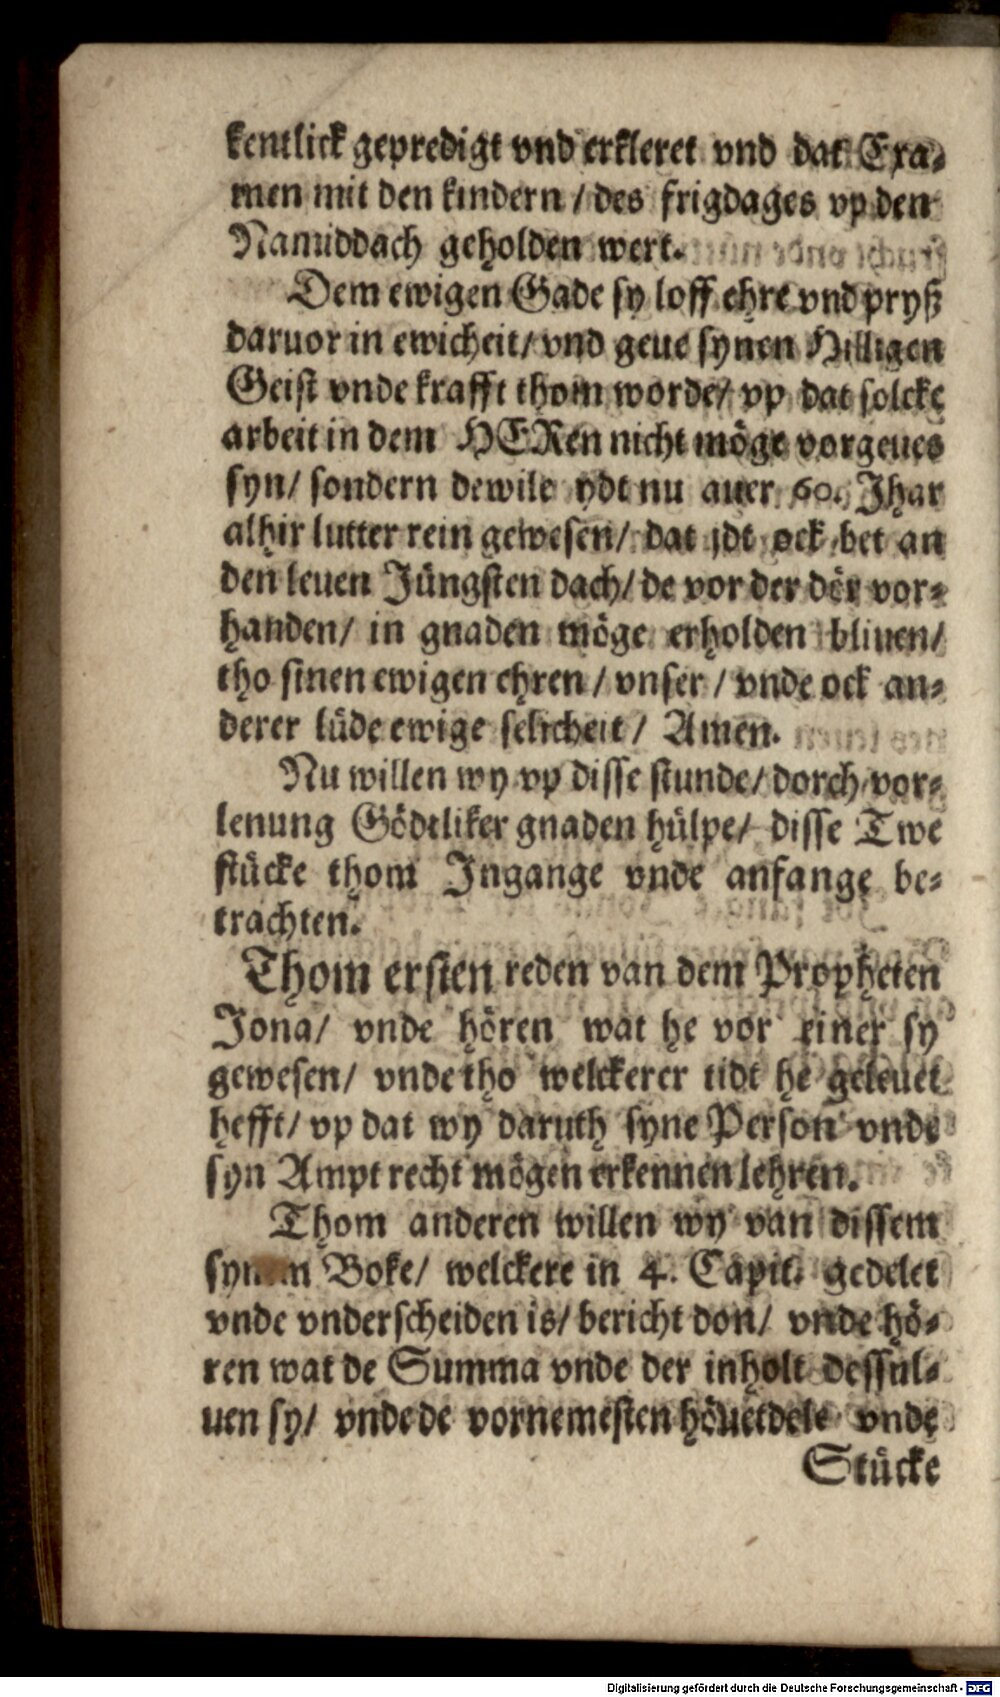 kentlick gepredigt vnd erkleret vnd dat Exa-
men mit den kindern / des frigdages vp den
Namiddach geholden wert.
Dem ewigen Gade sy loff ehre vnd pryß
daruor in ewicheit/ vnd geue synen Hilligen
Geist vnde krafft thom worde/ vp dat solcke
arbeit in dem HERen nicht möge vorgeues
syn/ sondern dewile ydt nu auer 60. Jhar
alhir lutter rein gewesen/ dat jdt ock bet an
den leuen Jüngsten dach/ de vor der dör vor-
handen/ in gnaden möge erholden bliuen/
tho sinen ewigen ehren / vnser / vnde ock an-
derer lüde ewige selicheit / Amen.
Nu willen wy vp disse stunde/ dorch vor-
lenung Gödtliker gnaden hülpe/ disse Twe
stücke thom Ingange vnde anfange be-
trachten.
Thom ersten reden van dem Propheten
Jona/ vnde hören wat he vor einer sy
gewesen/ vnde tho welckerer tidt he geleuet
hefft/ vp dat wy daruth syne Person vnde
syn Ampt recht mögen erkennen lehren.
Thom anderen willen wy van dissem
synem Boke/ welckere in 4. Capit. gedelet
vnde vnderscheiden is/ bericht don/ vnde hö-
ren wat de Summa vnde der inholt dessül-
uen sy/ vnde de vornemesten höuetdele vnde
Stücke
Digitalisierung gefördert durch die Deutsche Forschungsgemeinschaft - DFG